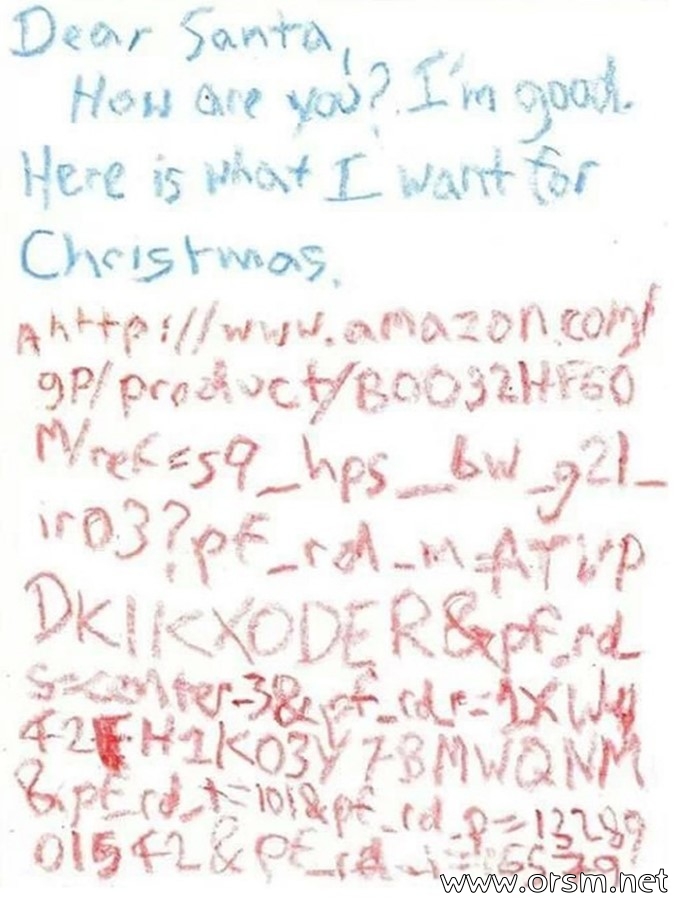 Dear Santa,
How are you? I'm good.
Here is what I want for
Christmas.
http://www.amazon.com/
gp/product/B0032HF60
M/ref=s9_hps_bw_g21_
ir03?pf_rd_m=ATVP
DKIKX0DER&pf_rd_
s=center-3&pf_rd_r=1XWY
42FH1K03Y78MWQNM
&pf_rd_t=101&pf_rd_p=13289
01542&pf_rd_i=16579
www.orsm.net